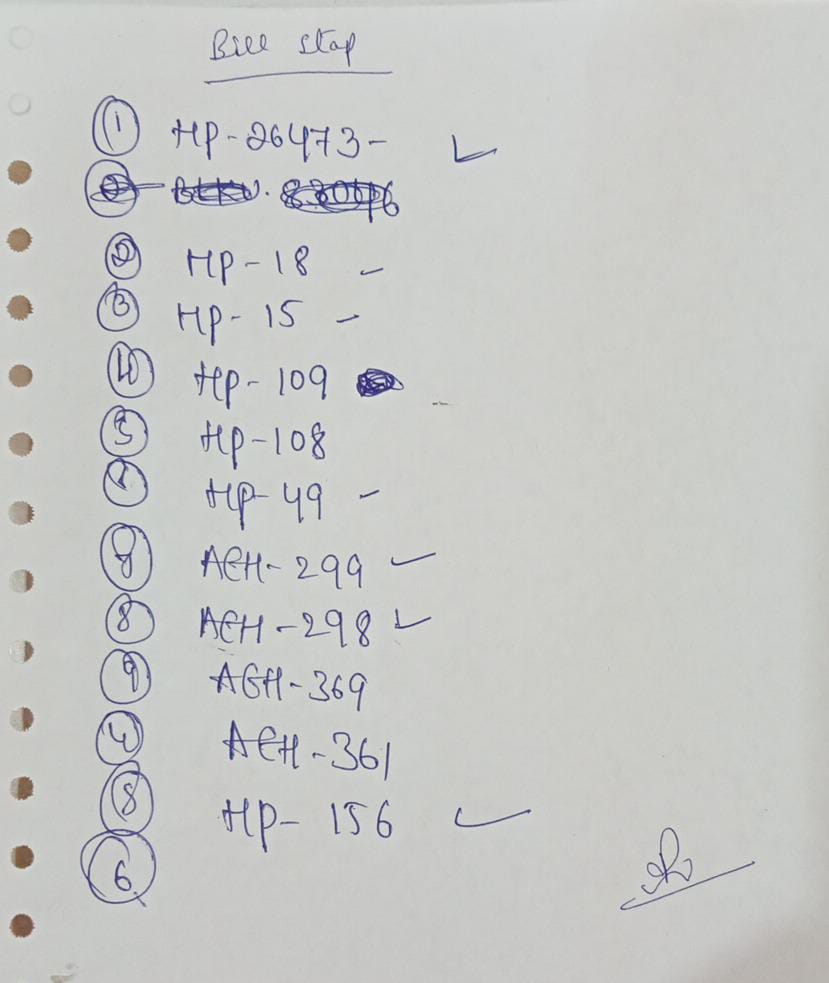 Bill stop
① HP-26473-
② HP-18 -
③ HP-15 -
④ HP-109
⑤ HP-108
HP-49 -
AEH-299
⑧ AEH-298
⑨ AGH-369
AEH-361
⑧ HP-156
⑥